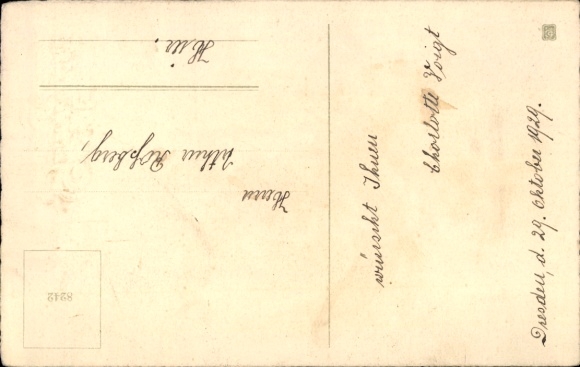 Dresden, d. 29. Oktober 1929.
wünscht Ihnen
Charlotte Voigt
Herrn
Arthur Roßberg,
Hier.
8242